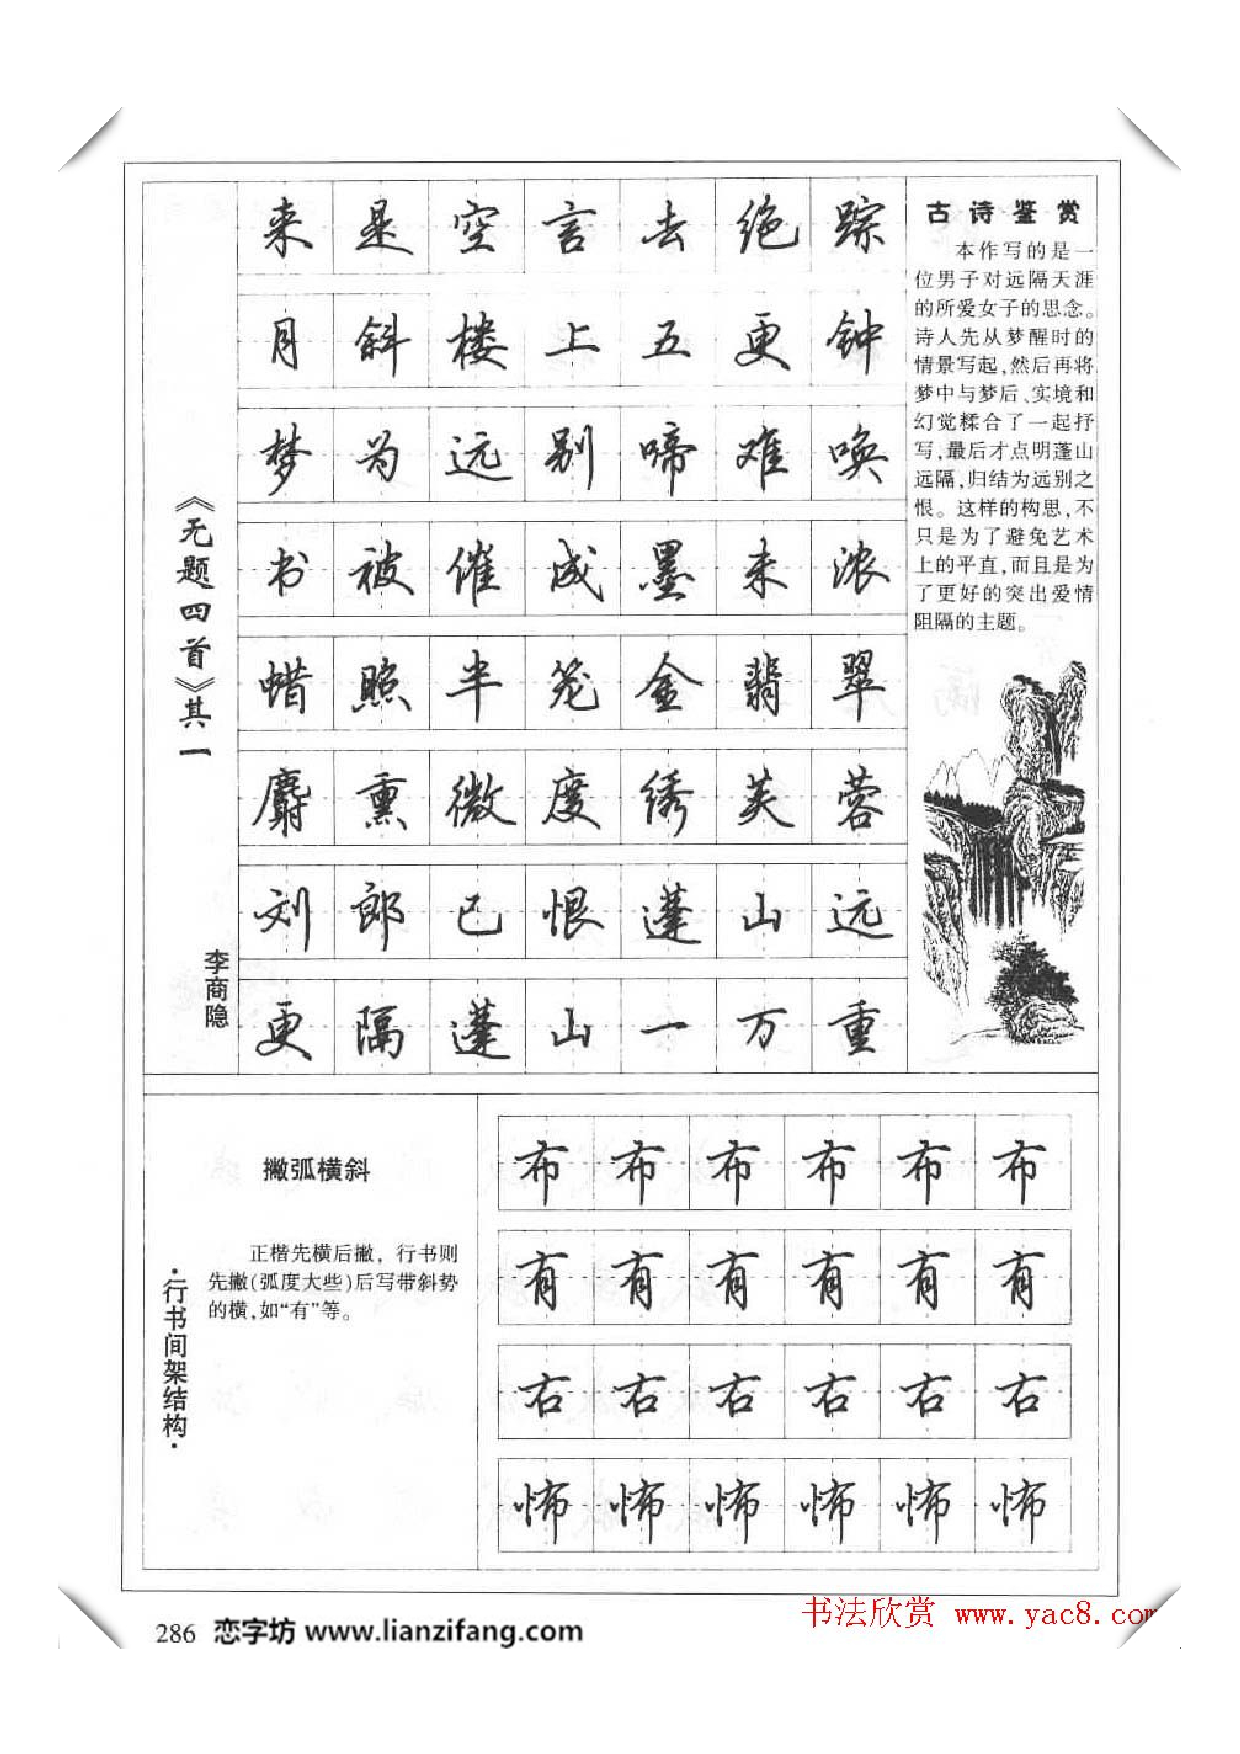 《无题四首》其一
李商隐
来是空言去绝踪
月斜楼上五更钟
梦为远别啼难唤
书被催成墨未浓
蜡照半笼金翡翠
麝熏微度绣芙蓉
刘郎已恨蓬山远
更隔蓬山一万重
古诗鉴赏
本作写的是一
位男子对远隔天涯
的所爱女子的思念。
诗人先从梦醒时的
情景写起,然后再将
梦中与梦后、实境和
幻觉糅合了一起抒
写,最后才点明蓬山
远隔,归结为远别之
恨。这样的构思,不
只是为了避免艺术
上的平直,而且是为
了更好的突出爱情
阻隔的主题。
·行书间架结构·
撇弧横斜
正楷先横后撇,行书则
先撇(弧度大些)后写带斜势
的横,如“有”等。
布布布布布布
有有有有有有
右右右右右右
怖怖怖怖怖怖
286 恋字坊 www.lianzifang.com
书法欣赏 www.yac8.com